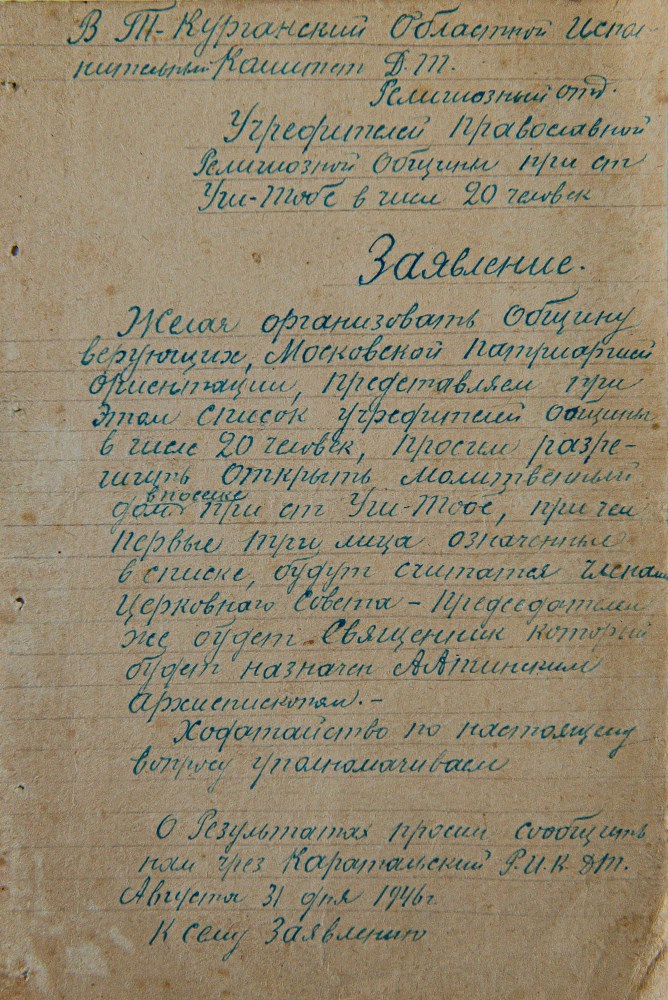 В Т-Курганский Областной Испол-
нительный Комитет Д.Т.
Религиозный отд.
Учредителей Православной
Религиозной Общины при ст
Уш-Тобе в числе 20 человек
Заявление.
Желая организовать Общину
верующих, Московской Патриаршей
ориентации, представляем при
этом список учредителей общины
в числе 20 человек, просим разре-
шить открыть молитвенный
в поселке
дом при ст Уш-Тобе, при чем
первые три лица означенные
в списке, будут считатся членами
Церковнаго Совета – Председателем
же будет Священник который
будет назначен ААтинским
Архиепископом. –
Ходатайство по настоящему
вопросу уполномачиваем
О Результатах просим сообщить
нам чрез Каратальский Р.И.К. ДТ.
Августа 31 дня 1946г.
К сему Заявлению